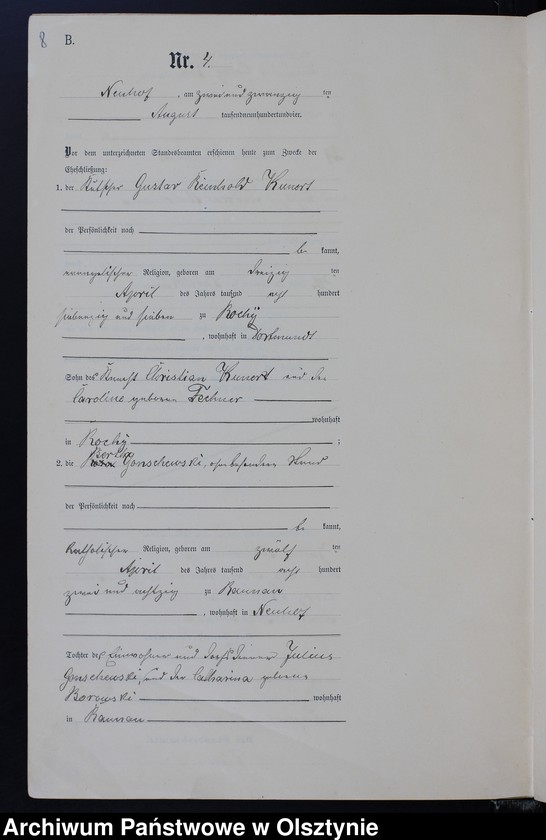 8
B.
Nr. 4.
Neuhof, am zwei und zwanzig ten
August tausendneunhundertundvier.
Vor dem unterzeichneten Standesbeamten erschienen heute zum Zwecke der
Eheschließung:
1. der Kutscher Gustav Reinhold Kunert
der Persönlichkeit nach
be kannt,
evangelischer Religion, geboren am dreizig ten
April des Jahres tausend acht hundert
siebenzig und sieben zu
, wohnhaft in Dortmund
Sohn des Knecht Christian Kunert und der
Caroline geborene Fechner
wohnhaft
in ;
2. die Gonschewski, ohne besonderen Stand
der Persönlichkeit nach
be kannt,
katholischer Religion, geboren am zwölf ten
April des Jahres tausend acht hundert
zwei und achtzig zu Rannau
, wohnhaft in Neuhof
Tochter des Einwohner und Julius
Gonschewski und der Catharina geborene
Borowski wohnhaft
in Rannau
Archiwum Państwowe w Olsztynie